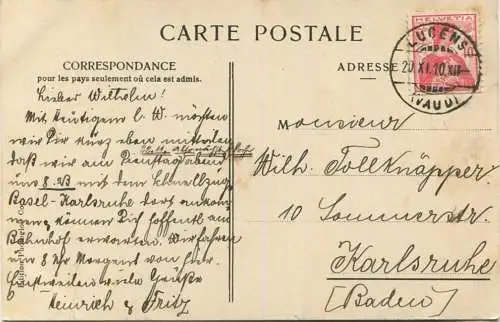 CARTE POSTALE
CORRESPONDANCE
pour les pays seulement où cela est admis.
ADRESSE
HELVETIA
LUCENS
20.XI.10.XII
(VAUD)
Lieber Wilhelm!
Mit Heutigem l. W. möchten
wir Dir kurz eben mitteilen
daß wir am Dienstag abend
uns 8.23 mit dem Schnellzug
Basel-Karlsruhe dort ankom
men & können Dich hoffentl. am
Bahnhof erwarten. Wir fahren
um 8 Uhr Morgens von hier.
Einstweilen viele Grüße
Heinrich & Fritz
Monsieur
Wilh. Tollknäpper
10 Sommerstr.
Karlsruhe
[Baden]